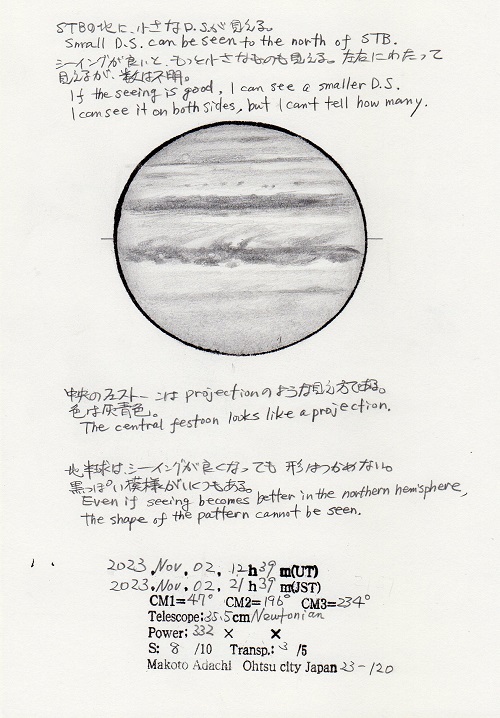 STBの北に、小さなD.S.が見える。
Small D.S. can be seen to the north of STB.
シーイングが良いと、もっと小さなものも見える。左右にわたって
見えるが、数は不明。
If the seeing is good, I can see a smaller D.S.
I can see it on both sides, but I can't tell how many.
中央のフェストーンはprojectionのような見え方である。
色は灰青色。
The central festoon looks like a projection.
北半球は、シーイングが良くなっても形はつかめない。
黒っぽい模様がいくつもある。
Even if seeing becomes better in the northern hemisphere,
the shape of the pattern cannot be seen.
2023, Nov, 02, 12h39m(UT)
2023, Nov, 02, 21h39m(JST)
CM1=47° CM2=196° CM3=234°
Telescope:35.5cm/Newtonian
Power: 332 × ×
S: 8 /10 Transp.: 3 /5
Makoto Adachi Ohtsu city Japan 23-120